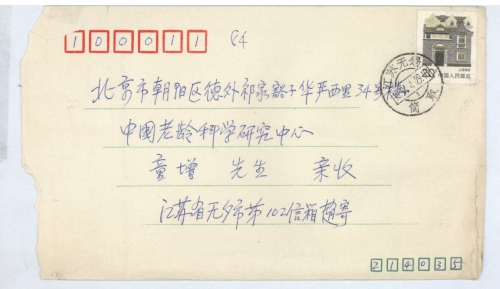 100011 84
北京市朝阳区德外祁家豁子华严西里34号楼
中国老龄科学研究中心
童增 先生 亲收
江苏省无夕市第102信箱赵寄
214035
20 中国人民邮政
江苏无锡